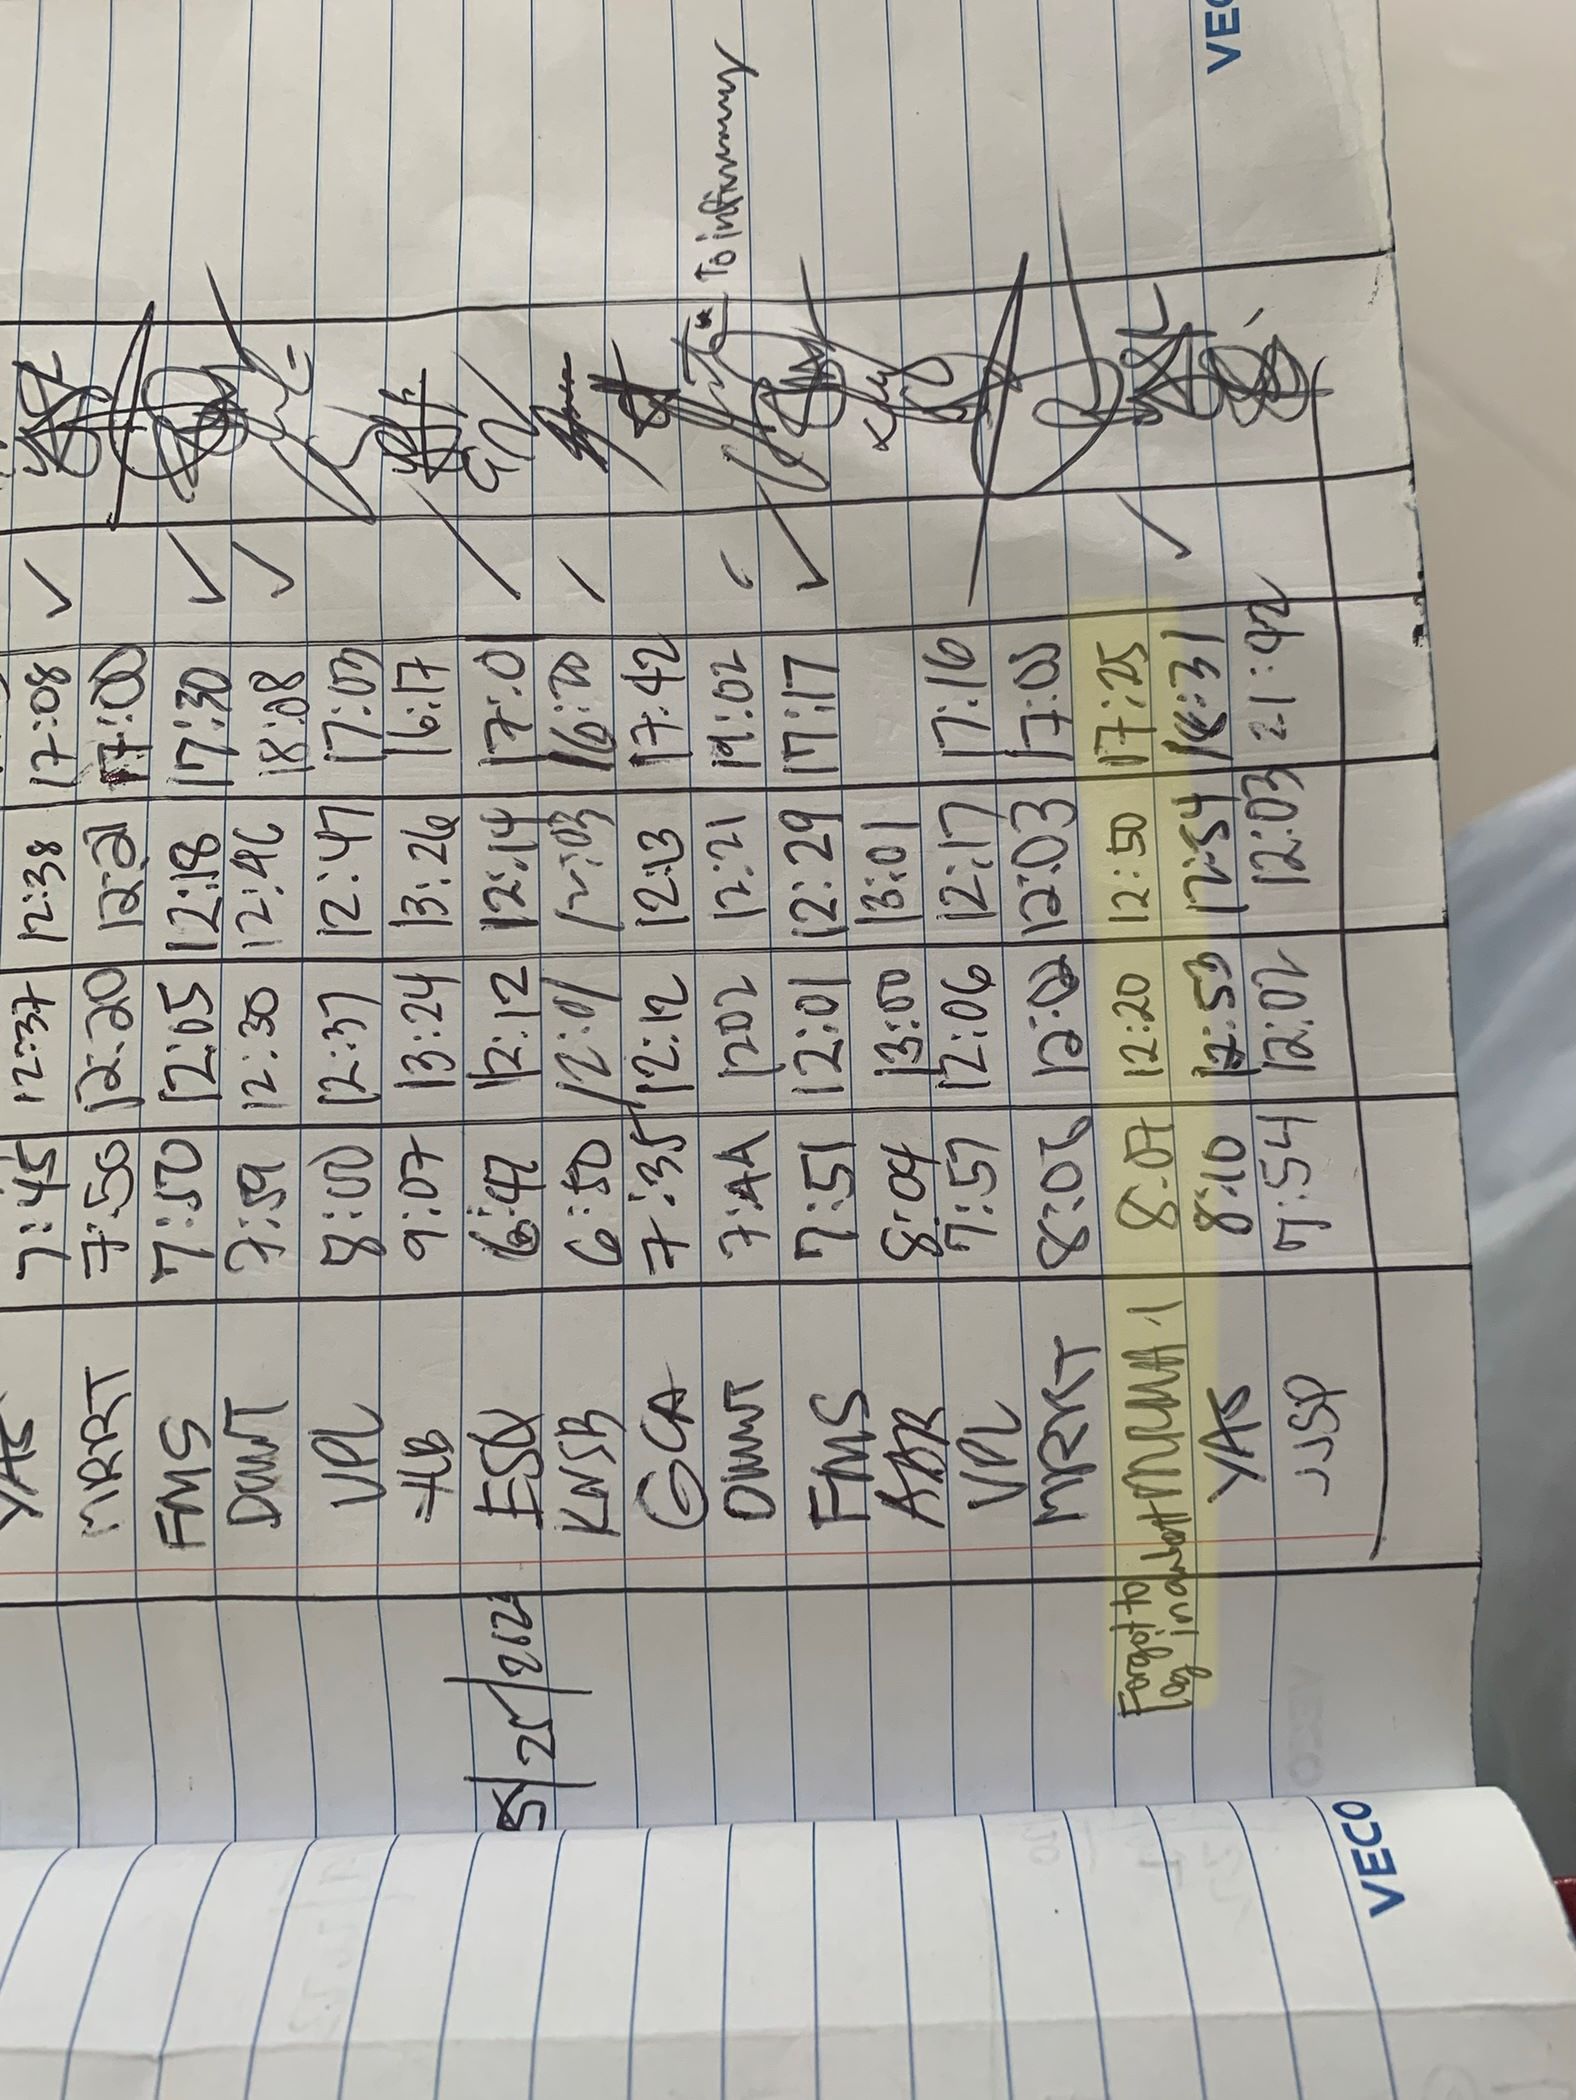 YAS 7:45 12:37 12:38 17:08 ✓
MRRT 7:50 12:20 12:21 17:00
FMS 7:50 12:05 12:18 17:30 ✓
DMWT 7:59 12:30 12:46 18:08 ✓
VPL 8:00 12:37 12:47 17:03
HB 9:07 13:24 13:26 16:17
5/25/202 ESQ 6:42 12:12 12:14 17:01
KNSB 6:50 12:01 12:03 16:20
GCA 7:35 12:12 12:13 17:42
DMWT 7:44 1202 12:21 19:02 To infirmary
FMS 7:51 12:01 12:29 17:17 ✓
ADR 8:04 13:00 13:01
VPL 7:57 12:06 12:17 17:16
MRRT 8:05 12:02 12:03 17:05
Forgot to 8:07 12:20 12:50 17:25
log in
YAS 8:10 12:53 12:54 18:31 ✓
JJSP 7:54 12:02 12:03 21:42
VECO
VECO